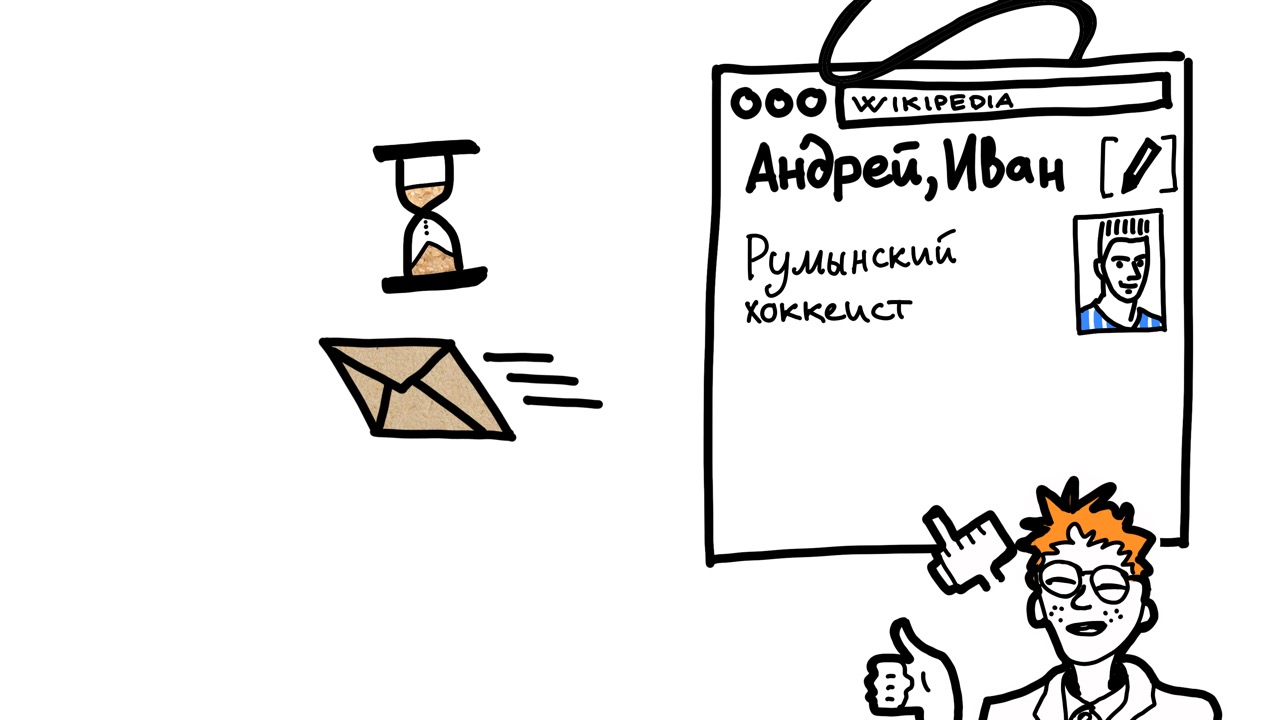 WIKIPEDIA
Андрей, Иван
Румынский
хоккеист